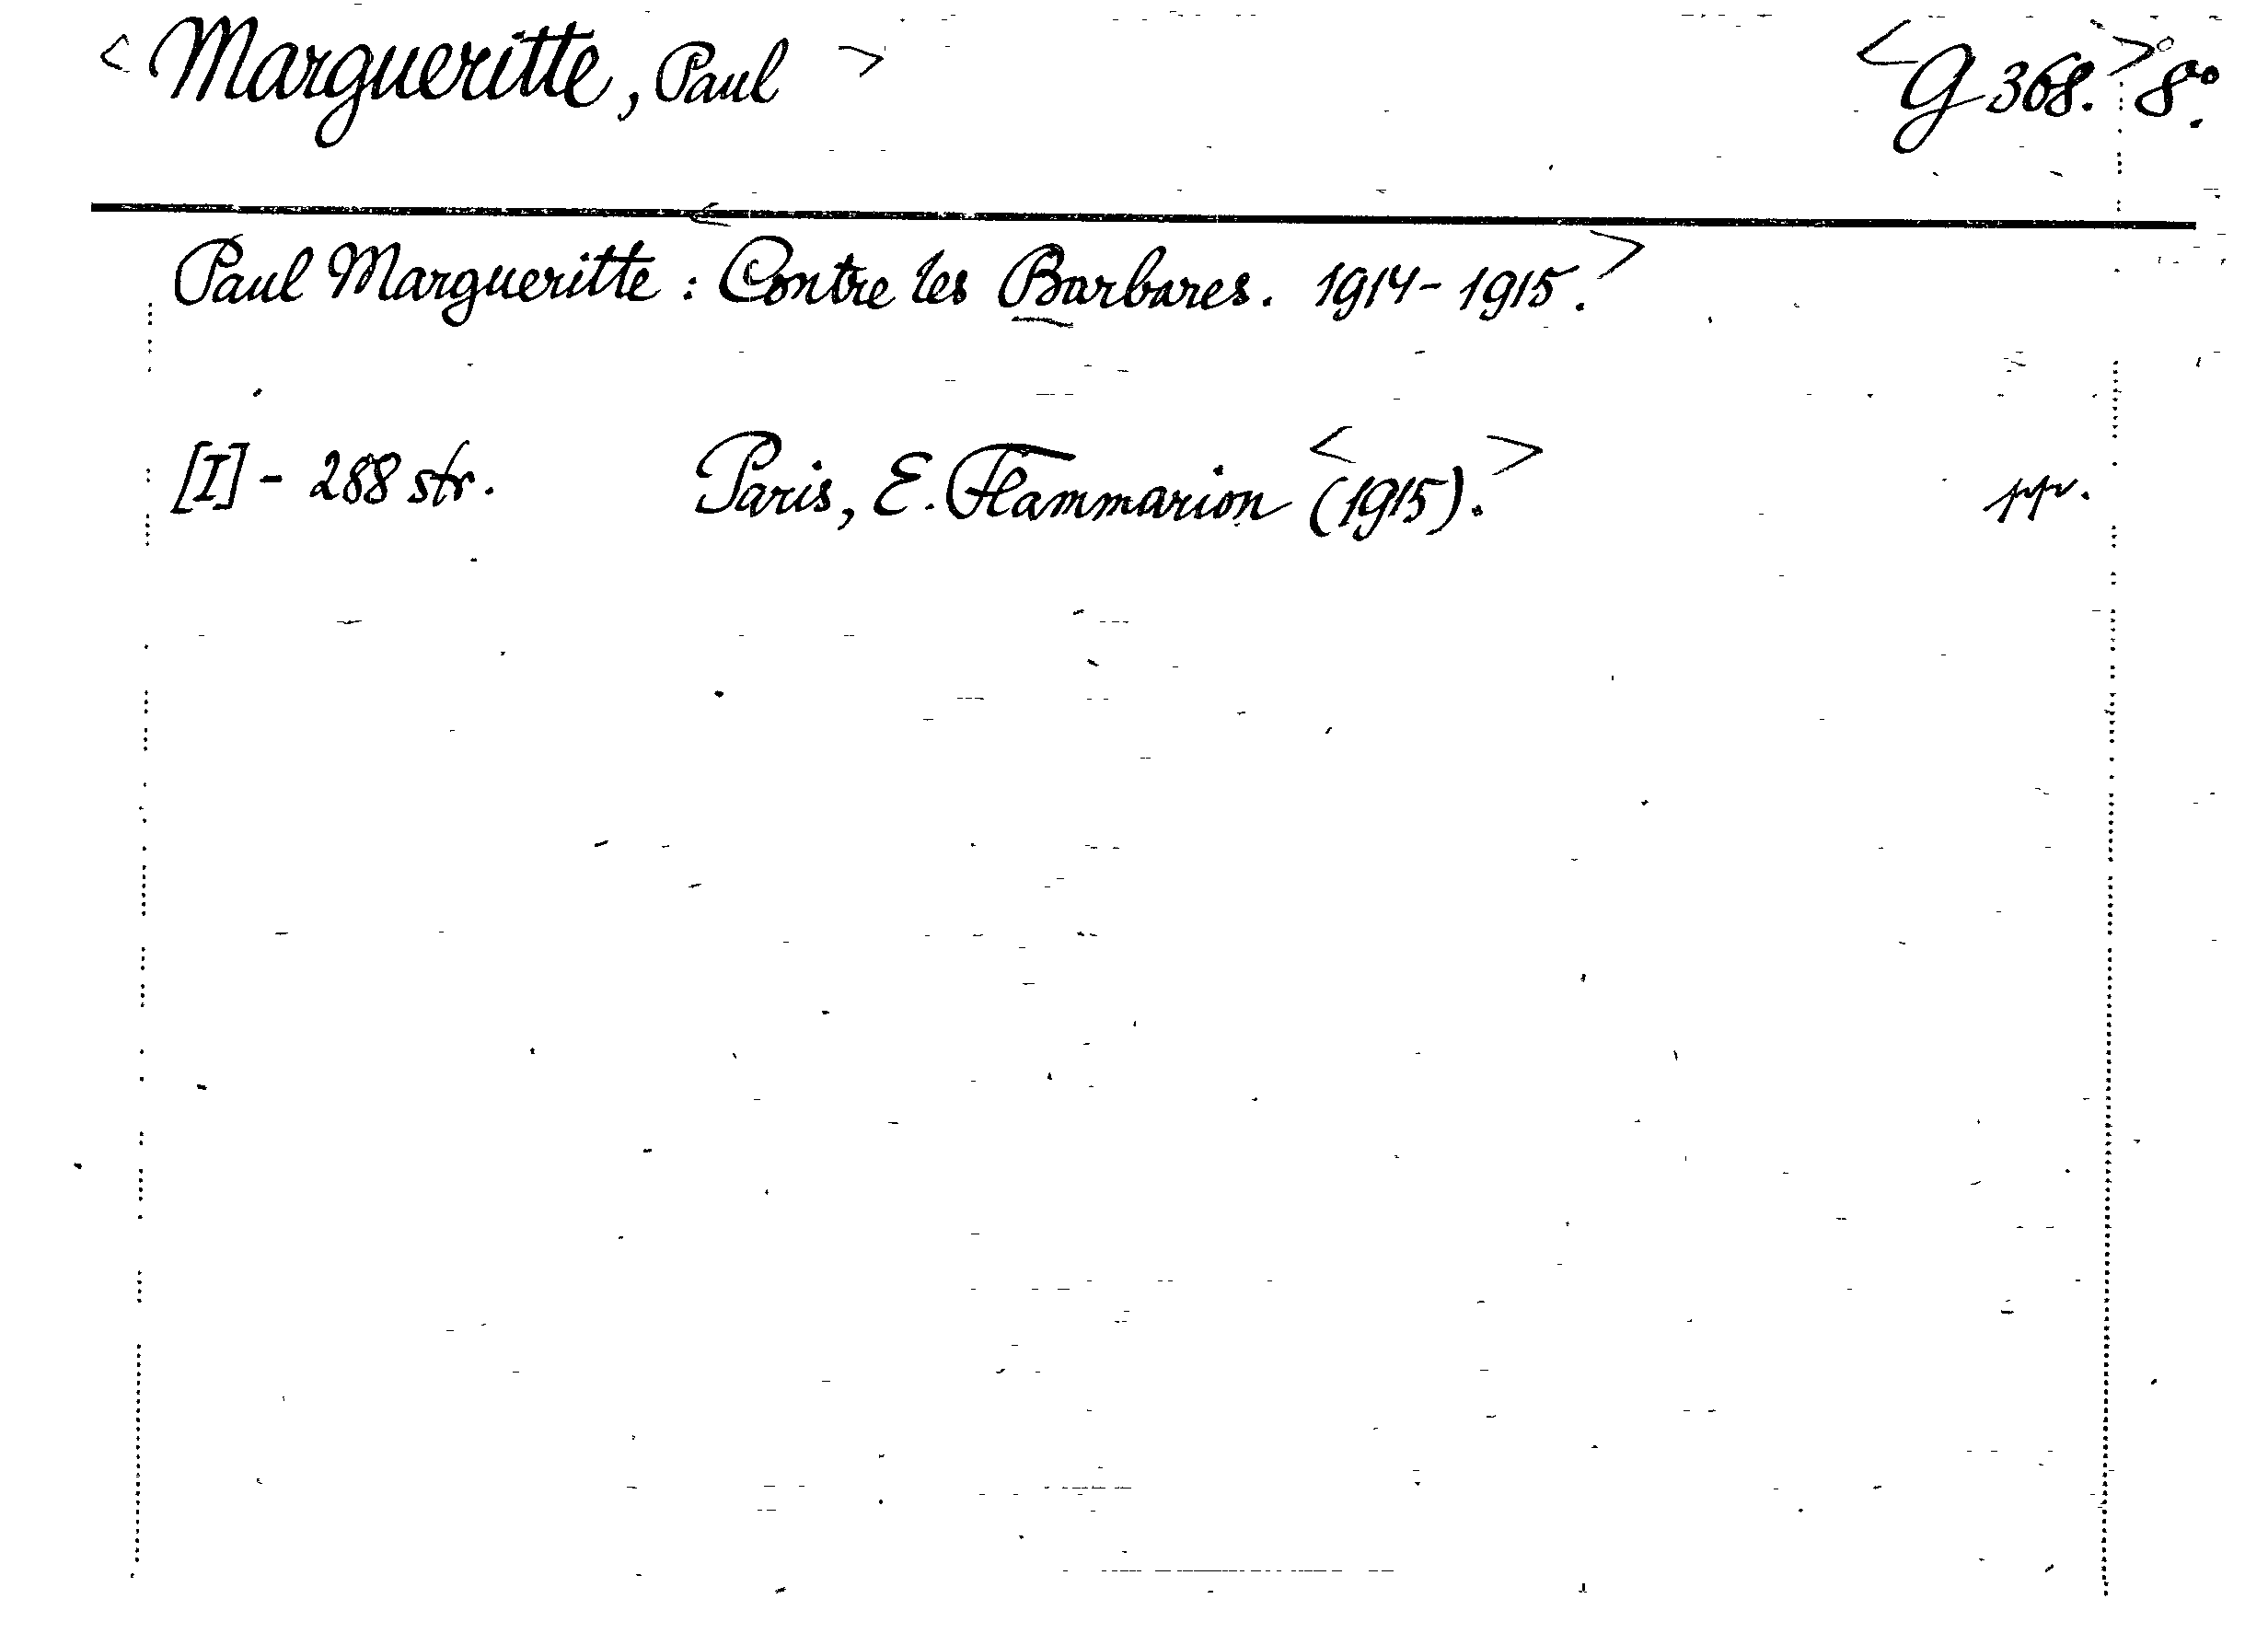 <Margueritte, Paul> <G 368.> 8°.
Paul Margueritte: <Contre les Barbares. 1914-1915.>
[I] - 288 str. Paris, E. Flammarion <(1915).>